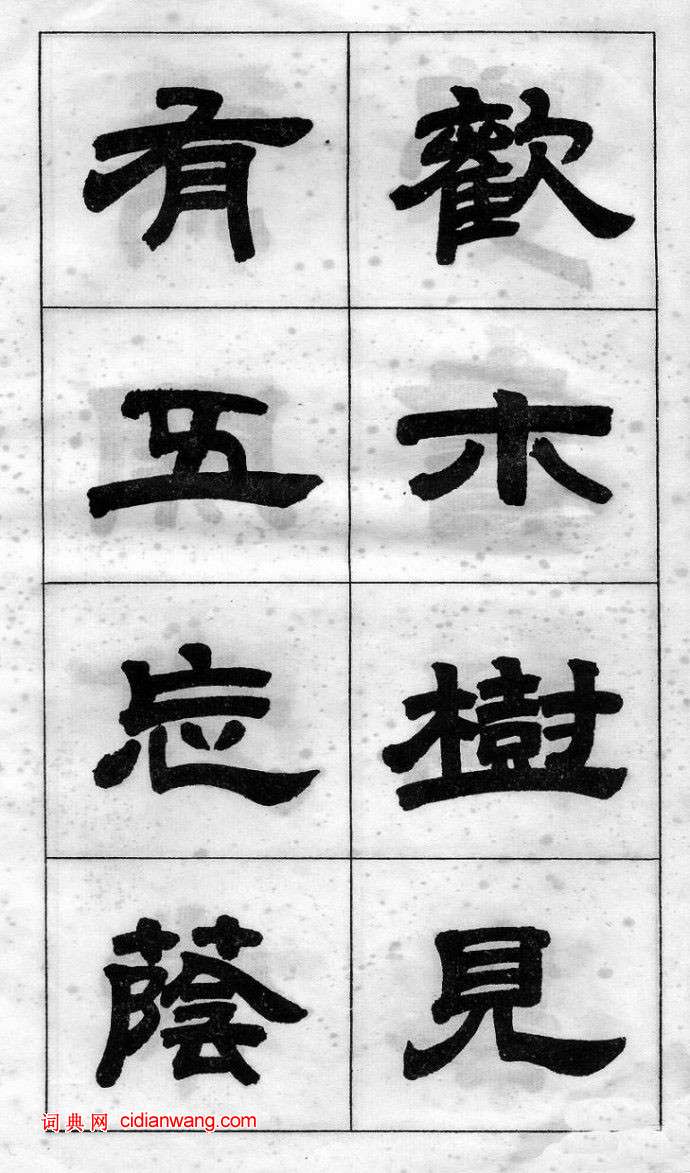 歡木樹見
有五忘蔭
词典网 cidianwang.com